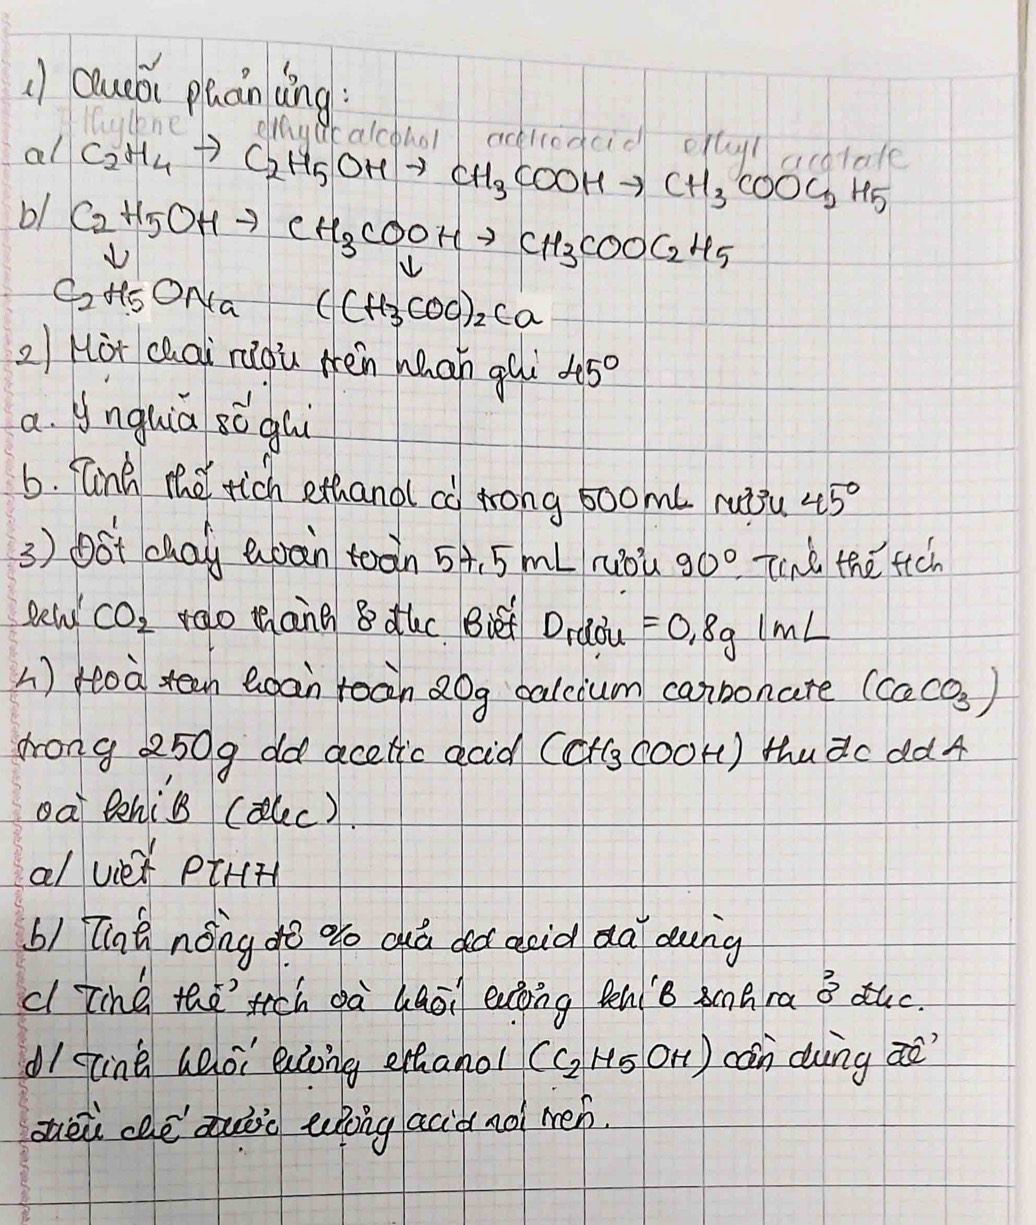 1) Chuỗi phản ứng:
Ethylene ethylic alcohol acetic acid ethyl acetate
a/ C2H4 → C2H5OH → CH3COOH → CH3COOC2H5
b/ C2H5OH → CH3COOH → CH3COOC2H5
↓ ↓
C2H5ONa (CH3COO)2Ca
2) Một chai rượu trên nhãn ghi 45°
a. Ý nghĩa số ghi
b. Tính thể tích ethanol có trong 500mL rượu 45°
3) Đốt cháy hoàn toàn 57,5 mL rượu 90°. Tính thể tích
khí CO2 tạo thành ở đkc. Biết Drượu = 0,8g/mL
4) Hoà tan hoàn toàn 20g calcium carbonate (CaCO3)
trong 250g dd acetic acid (CH3COOH) thu đc dd A
và khí B (đkc).
a/ Viết PTHH
b/ Tính nồng độ % của dd acid đã dùng
c/ Tính thể tích và khối lượng khí B sinh ra ở đkc.
d/ Tính khối lượng ethanol (C2H5OH) cần dùng để
điều chế được lượng acid nói trên.